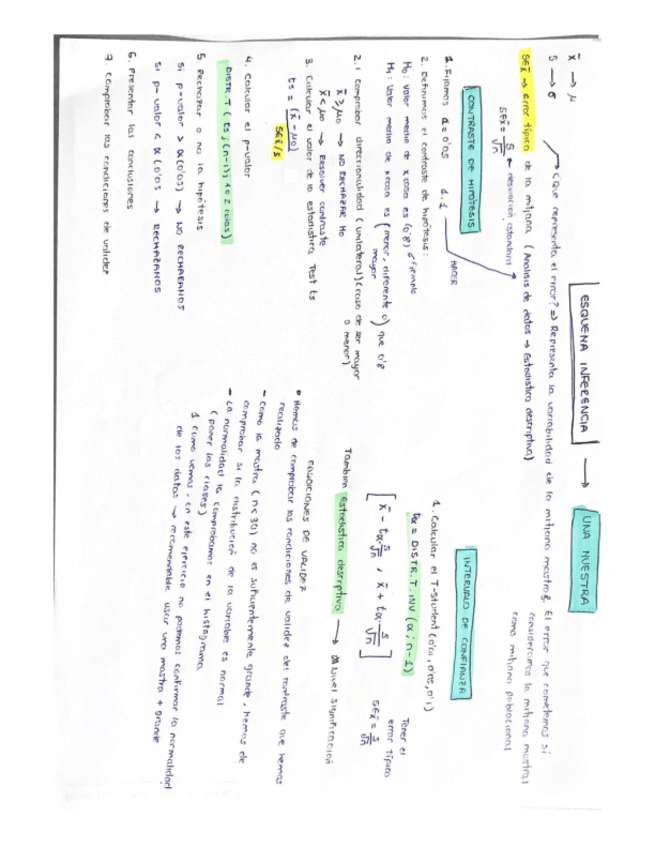 ESQUEMA INFERENCIA → UNA MUESTRA
x̄ → μ
S → σ
¿Que representa el error? => Representa la variabilidad de la mitjana mostral. El error que cometemos si
consideramos la mitjana mostral
como mitjana poblacional
SEx̄ → error típico de la mitjana (Analisis de datos → Estadistica descriptiva)
SEx̄ = S/√n ← desviación estandard
HACER
CONTRASTE DE HIPOTESIS
1. Fijamos α = 0'05 1.1
2. Definimos el contraste de hipótesis:
H0: valor medio de x cosa es (0'8) ejemplo
H1: valor medio de x cosa es (menor, diferente o mayor) que 0'8
2.1 Comprobar direccionalidad (unilateral) (caso de ser mayor
o menor)
x̄ ≥ μ0 → NO RECHAZAR H0
x̄ < μ0 → Resolver contraste
3. Calcular el valor de la estadistica Test ts
ts = (x̄ - μ0)
SEx̄/s
4. Calcular el p-valor
DISTR.T (ts ; (n-1) ; 1 o 2 colas)
5. Rechazar o no la hipótesis
Si p-valor > α (0'05) → NO RECHAZAMOS
Si p-valor < α (0'05) → RECHAZAMOS
6. Presentar las conclusiones
7. Comprobar las condiciones de validez
INTERVALO DE CONFIANZA
1. Calcular el T-student (0'01, 0'05, 0'1)
tα = DISTR.T.INV (α ; n-1)
[x̄ - tα · S/√n , x̄ + tα · S/√n]
Tener el
error típico
SEx̄ = S/√n
También estadística descriptiva → nivel significación
CONDICIONES DE VALIDEZ
• Hemos de comprobar las condiciones de validez del contraste que hemos
realizado
- Como la mostra (n<30) no es suficientemente grande, hemos de
comprobar si la distribución de la variable es normal
- La normalidad la comprobamos en el histograma
(poner las clases)
1. Como vemos, en este ejercicio no podemos confirmar la normalidad
de los datos → recomendable usar una mostra + grande